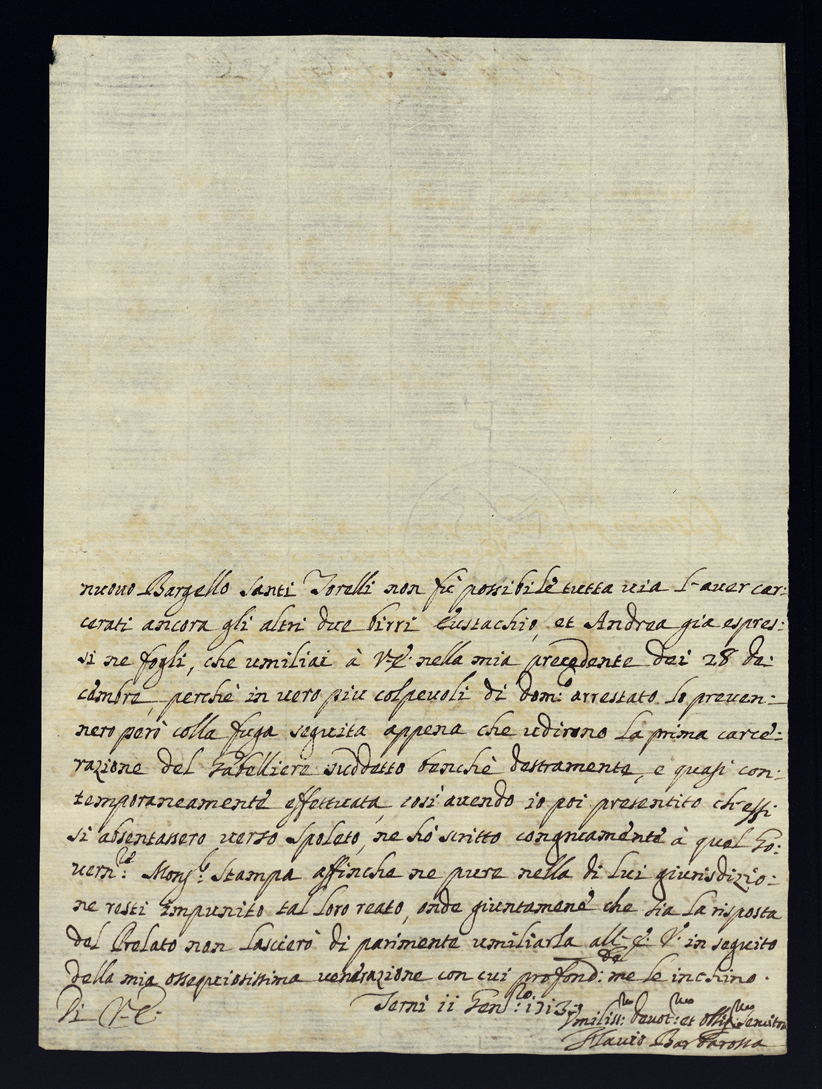 nuovo Bargello Santi Torelli non fù possibile tutta uia l'auer car:
cerati ancora gli altri due birri Eustachio, et Andrea gia espres:
si ne fogli, che umiliai à V. E. nella mia precedente dei 28 de:
cembre, perche in uero piu colpeuoli di dom.º arrestato lo preuen:
nero però colla fuga seguita appena che udirono la prima carce:
razione del Gabelliere suddetto benche destramente, e quasi con:
temporaneamente effettuata, così auendo io poi presentito ch'essi
si absentassero uerso Spoleto, ne hò scritto congruamente à quel Go:
uern:re Mons:r Stampa affinche ne pure nella di lui giurisdizio:
ne resti impunito tal loro reato, onde giuntamene che sia la risposta
del Prelato non lascierò di parimente umiliarla all' E. V. in seguito
della mia ossequiosissima uenerazione con cui profond:te me le inchino.
Di V. E. Terni ii Gen:ro 1713
Vmiliss:mo deuot:mo et Obblig:mo Seruitore
Flauio Barbarossa